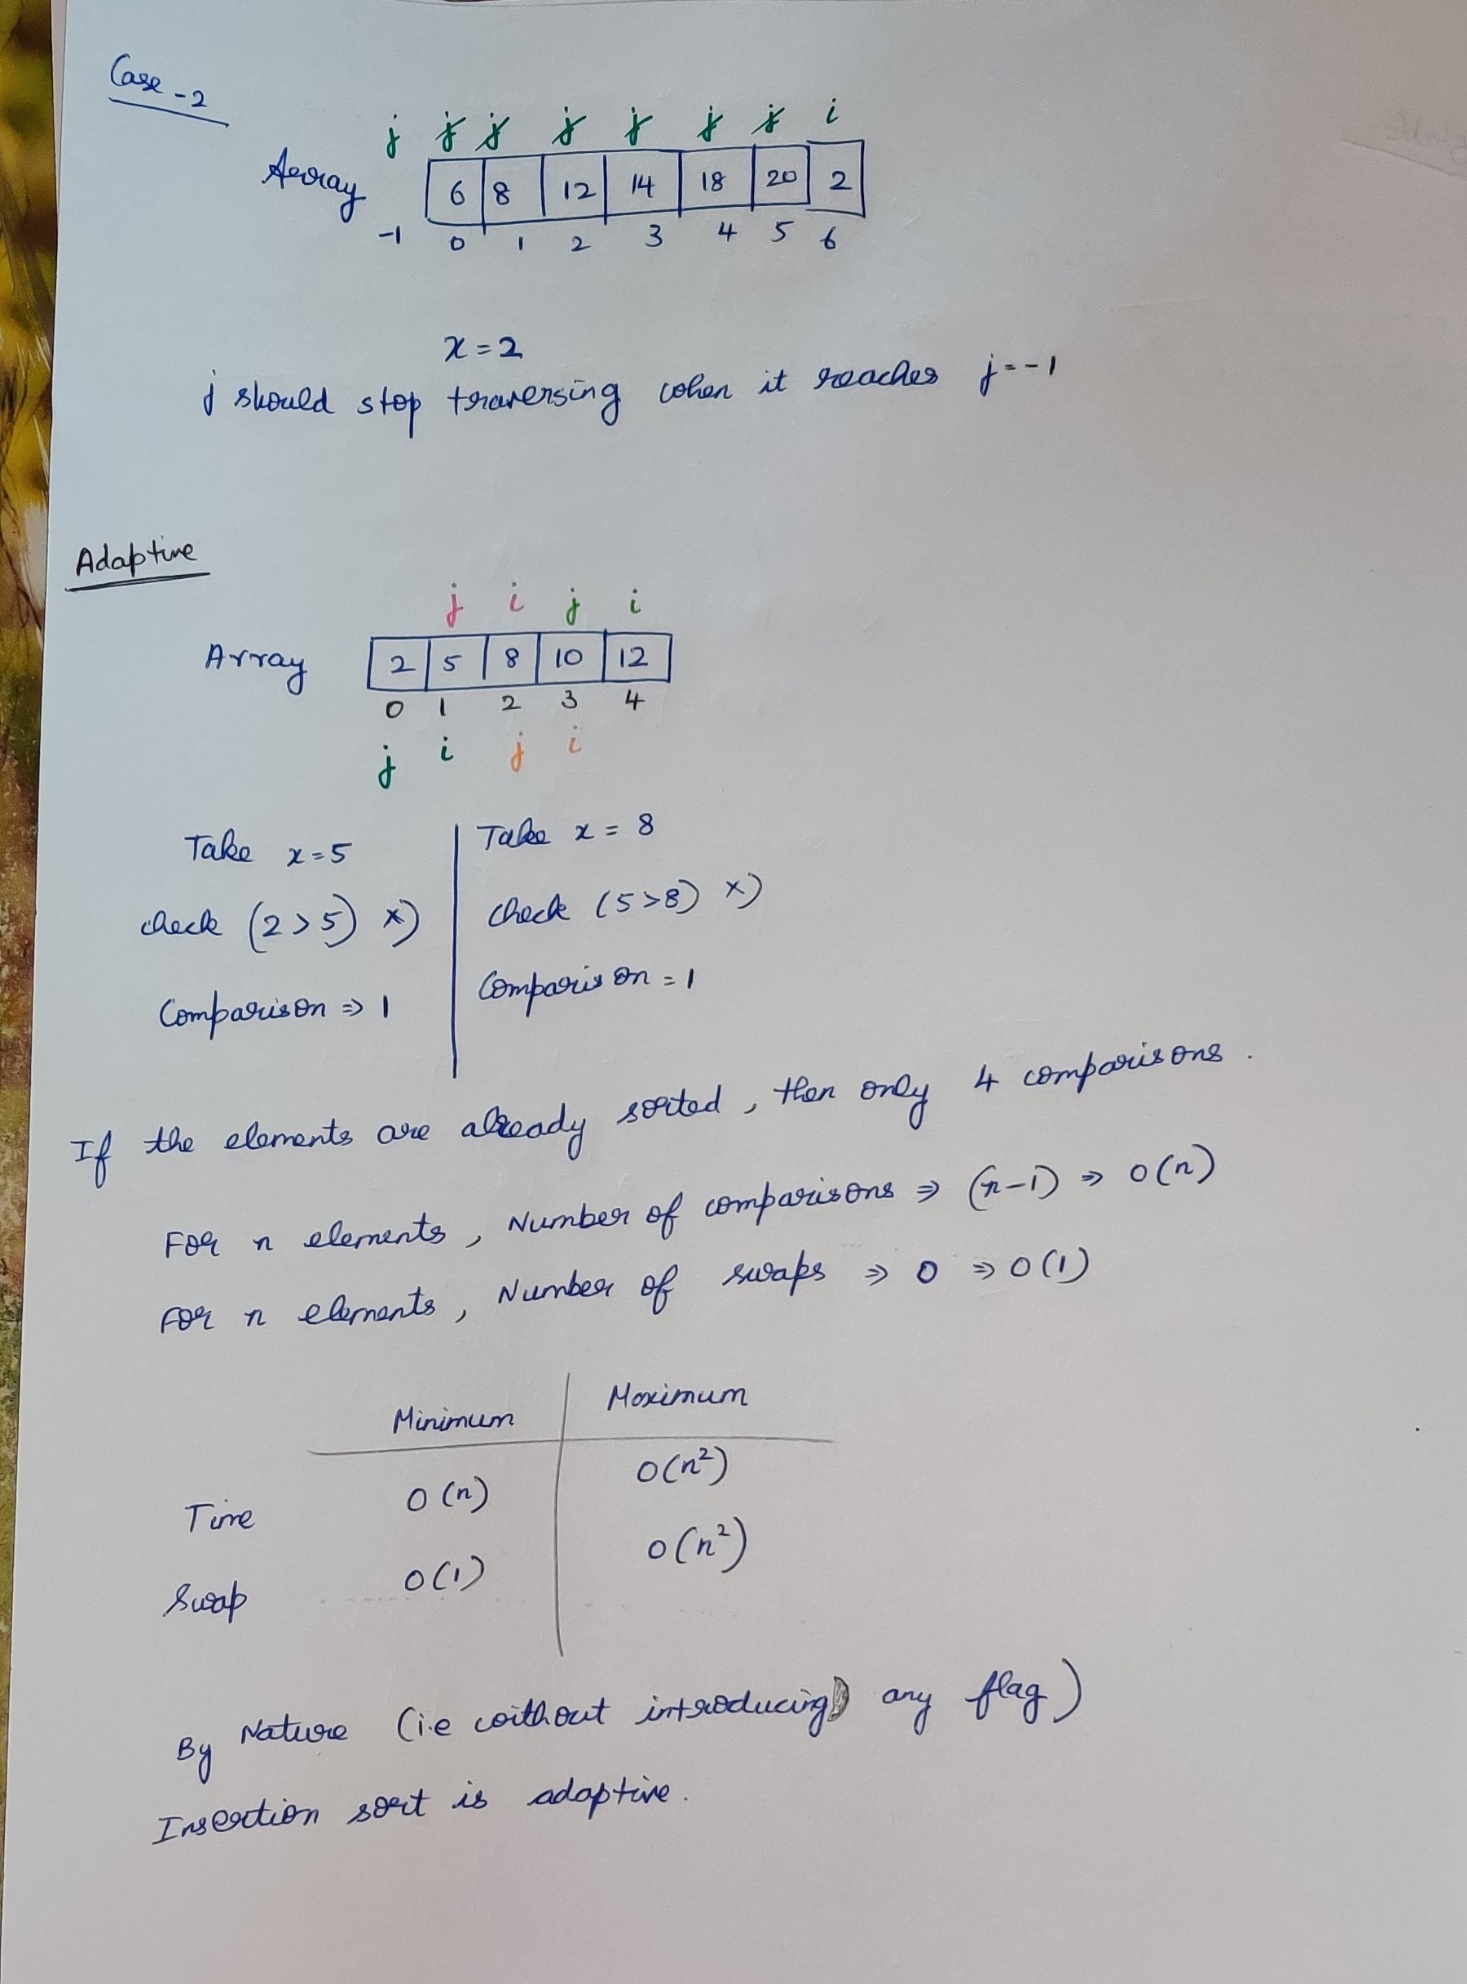 Case-2
j j j j j j j i
Array 6 8 12 14 18 20 2
-1 0 1 2 3 4 5 6
x=2
j should stop traversing when it reaches j=-1
Adaptive
j i j i
Array 2 5 8 10 12
0 1 2 3 4
j i j i
Take x=5
check (2>5) ×)
Comparison ⇒ 1
Take x = 8
Check (5>8) ×)
Comparison = 1
If the elements are already sorted, then only 4 comparisons.
For n elements, Number of comparisons ⇒ (n-1) ⇒ O(n)
For n elements, Number of swaps ⇒ 0 ⇒ O(1)
Minimum Maximum
Time O(n) O(n²)
Swap O(1) O(n²)
By Nature (i.e without introducing any flag)
Insertion sort is adaptive.